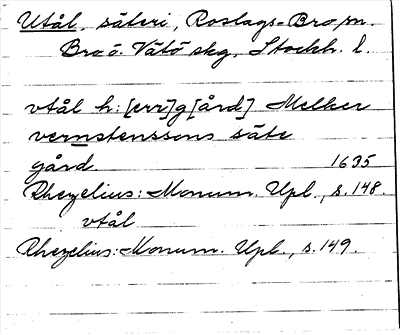 Utål, säteri, Roslags-Bro sn.
Bro o. Vätö skg, Stockh. l.
vtål h: [err]g[ård] Melker
vernstenssons säte
gård 1635
Rhezelius: Monum. Upl., s. 148.
vtål
Rhezelius: Monum. Upl., s. 149.